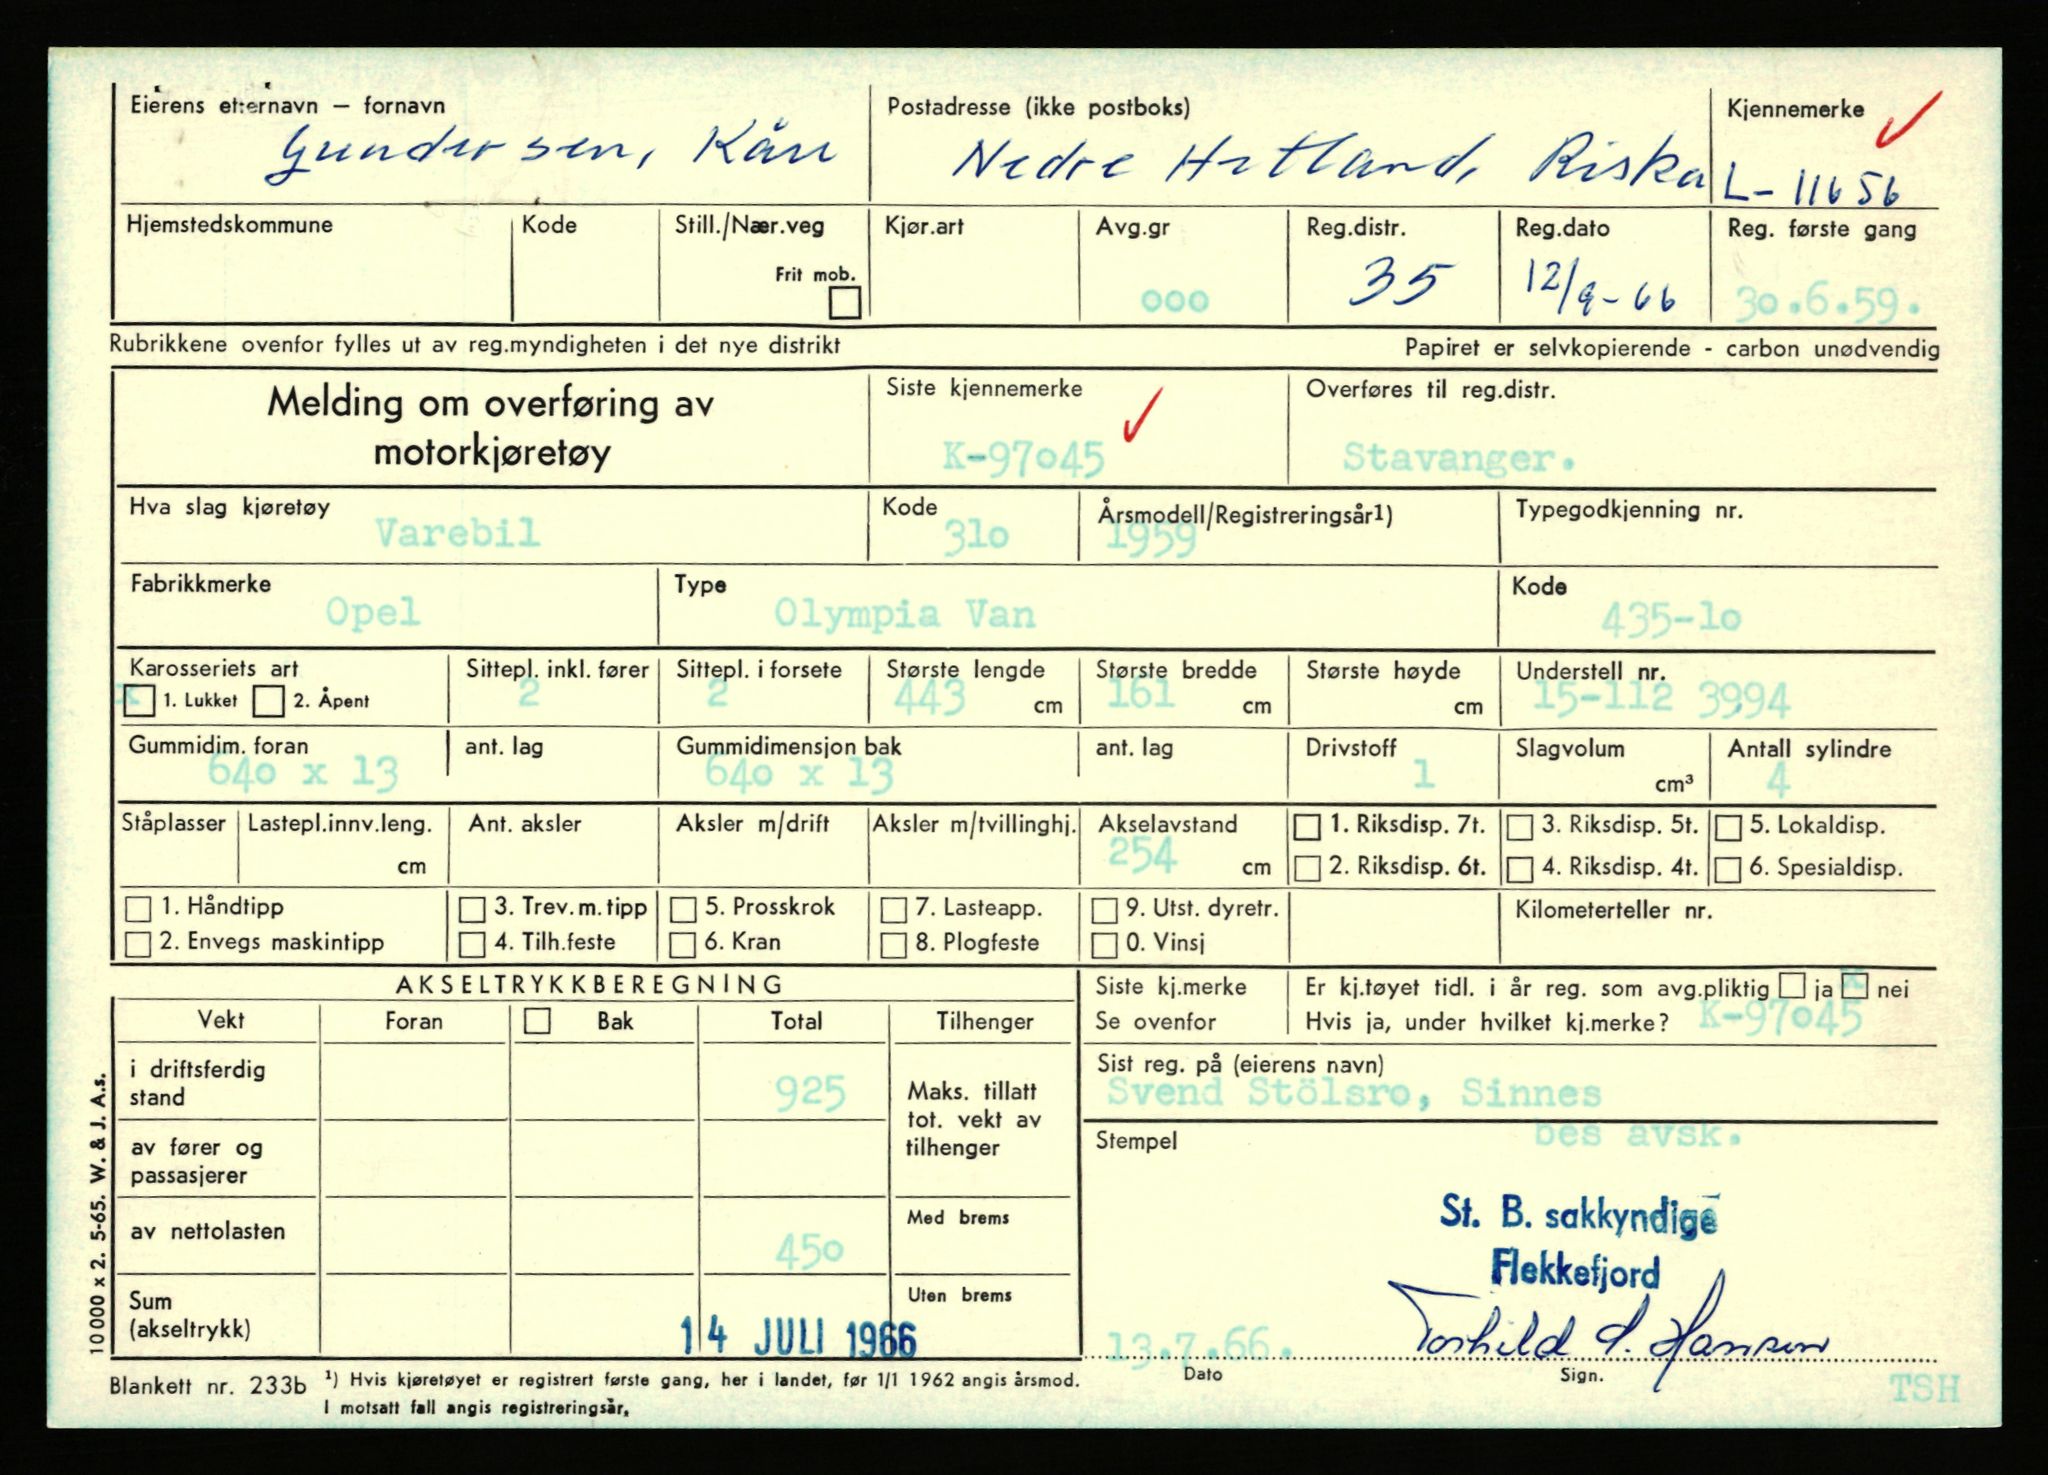 Eierens etternavn – fornavn
Gundersen, Kåre
Postadresse (ikke postboks)
Nedre Hetland, Riska
Kjennemerke
L-11656
Hjemstedskommune
Kode
Still./Nær.veg
Frit mob.
Kjør.art
Avg.gr
ooo
Reg.distr.
35
Reg.dato
12/9-66
Reg. første gang
3o.6.59.
Rubrikkene ovenfor fylles ut av reg.myndigheten i det nye distrikt
Papiret er selvkopierende - carbon unødvendig
Melding om overføring av
motorkjøretøy
Siste kjennemerke
K-97o45
Overføres til reg.distr.
Stavanger.
Hva slag kjøretøy
Varebil
Kode
31o
Årsmodell/Registreringsår1)
1959
Typegodkjenning nr.
Fabrikkmerke
Opel
Type
Olympia Van
Kode
435-1o
Karosseriets art
x 1. Lukket 2. Åpent
Sittepl. inkl. fører
2
Sittepl. i forsete
2
Største lengde
443 cm
Største bredde
161 cm
Største høyde
cm
Understell nr.
15-112 3994
Gummidim. foran
64o x 13
ant. lag
Gummidimensjon bak
64o x 13
ant. lag
Drivstoff
1
Slagvolum
cm³
Antall sylindre
4
Ståplasser
Lastepl.innv.leng.
cm
Ant. aksler
Aksler m/drift
Aksler m/tvillinghj.
Akselavstand
254 cm
1. Riksdisp. 7t.
2. Riksdisp. 6t.
3. Riksdisp. 5t.
4. Riksdisp. 4t.
5. Lokaldisp.
6. Spesialdisp.
1. Håndtipp
2. Envegs maskintipp
3. Trev. m. tipp
4. Tilh.feste
5. Prosskrok
6. Kran
7. Lasteapp.
8. Plogfeste
9. Utst. dyretr.
0. Vinsj
Kilometerteller nr.
AKSELTRYKKBEREGNING
Vekt
Foran
Bak
Total
Tilhenger
i driftsferdig
stand
925
Maks. tillatt
tot. vekt av
tilhenger
av fører og
passasjerer
av nettolasten
45o
Med brems
Sum
(akseltrykk)
Uten brems
14 JULI 1966
Siste kj.merke
Se ovenfor
Er kj.tøyet tidl. i år reg. som avg.pliktig ja x nei
Hvis ja, under hvilket kj.merke? K-97o45
Sist reg. på (eierens navn)
Svend Stölsro, Sinnes
bes avsk.
Stempel
St. B. sakkyndige
Flekkefjord
13.7.66.
Torhild S. Hansen
Dato
Sign.
TSH
10000 x 2. 5-65. W. & J. A.s.
Blankett nr. 233b
¹) Hvis kjøretøyet er registrert første gang, her i landet, før 1/1 1962 angis årsmod.
I motsatt fall angis registreringsår.